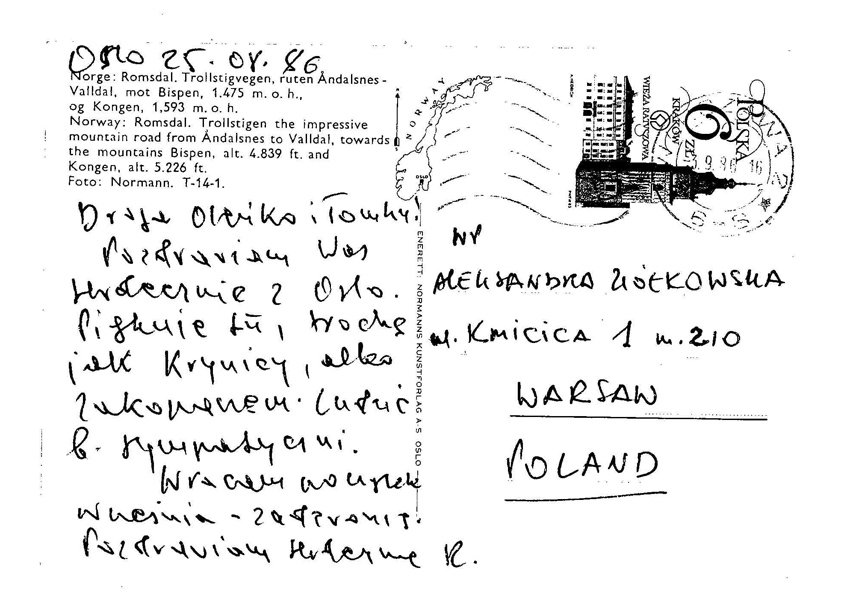 OSLO 25.08.86
Norge: Romsdal. Trollstigvegen, ruten Åndalsnes-
Valldal, mot Bispen, 1.475 m. o. h.,
og Kongen, 1,593 m. o. h.
Norway: Romsdal. Trollstigen the impressive
mountain road from Åndalsnes to Valldal, towards
the mountains Bispen, alt. 4.839 ft. and
Kongen, alt. 5.226 ft.
Foto: Normann. T-14-1.
Droga Oleńko i Tomku.
Pozdrawiam Was
serdecznie z Oslo.
Pięknie tu, trochę
jak Krynicy, albo
Zakopanem. Ludzie
b. sympatyczni.
Wracam
września - zadzwonię.
Pozdrawiam serdecznie K.
NORWAY
OSLO
ENERETT: NORMANNS KUNSTFORLAG A/S OSLO
POLSKA
6 ZŁ
KRAKÓW
WIEŻA RATUSZOWA
WP
ALEKSANDRA ZIÓŁKOWSKA
ul. KMICICA 1 m. 210
WARSAW
POLAND